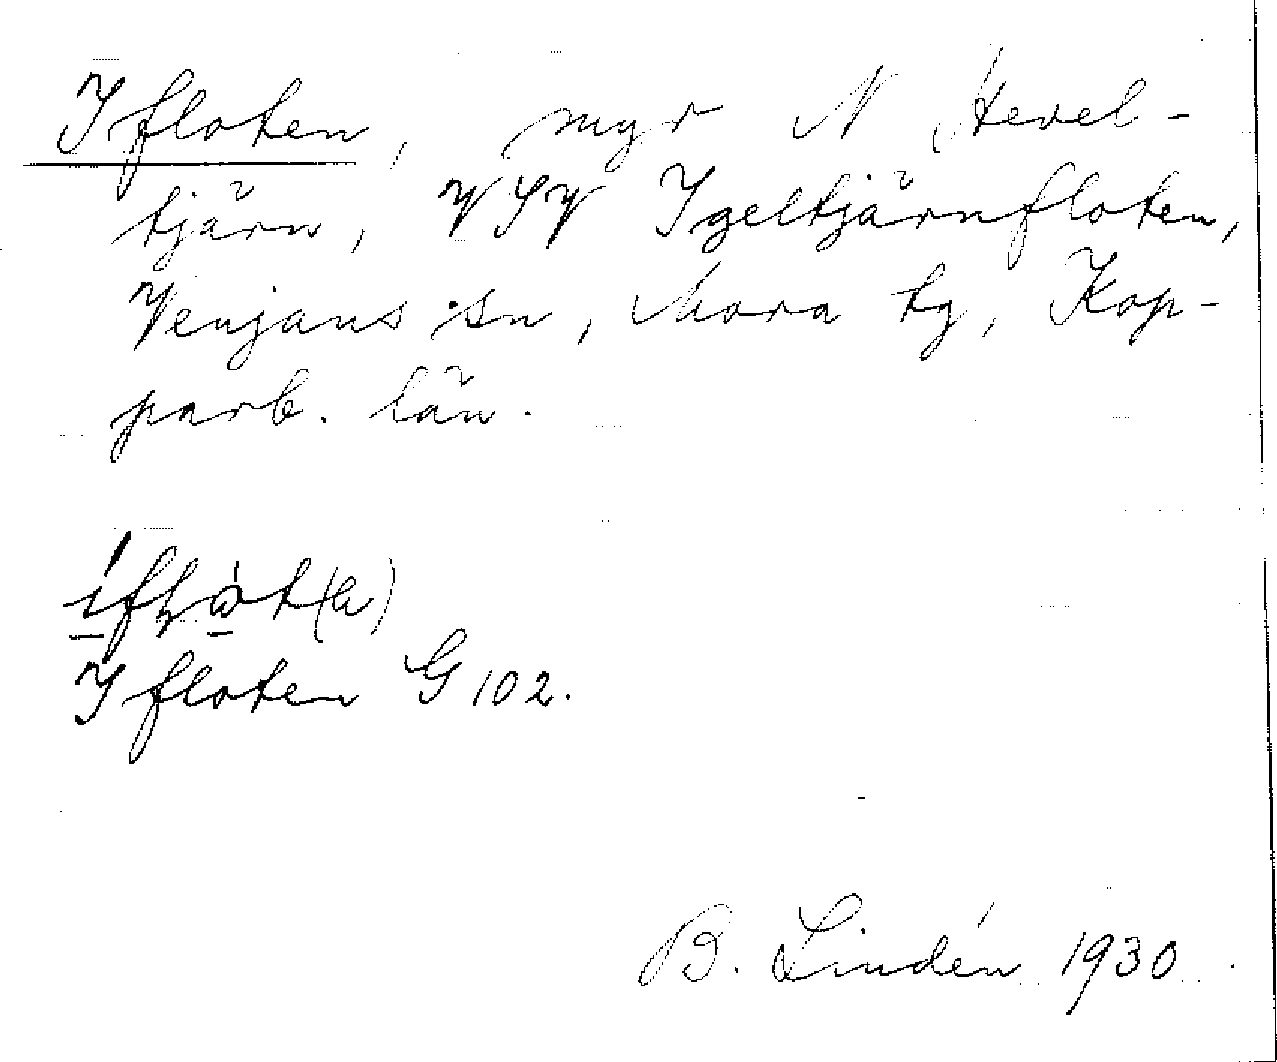 Ifloten, myr N Hevel-
tjärn, VSV Igeltjärnfloten,
Venjans sn, Mora tg, Kop-
parb. län.
Ifloten G 102.
B. Lindén 1930